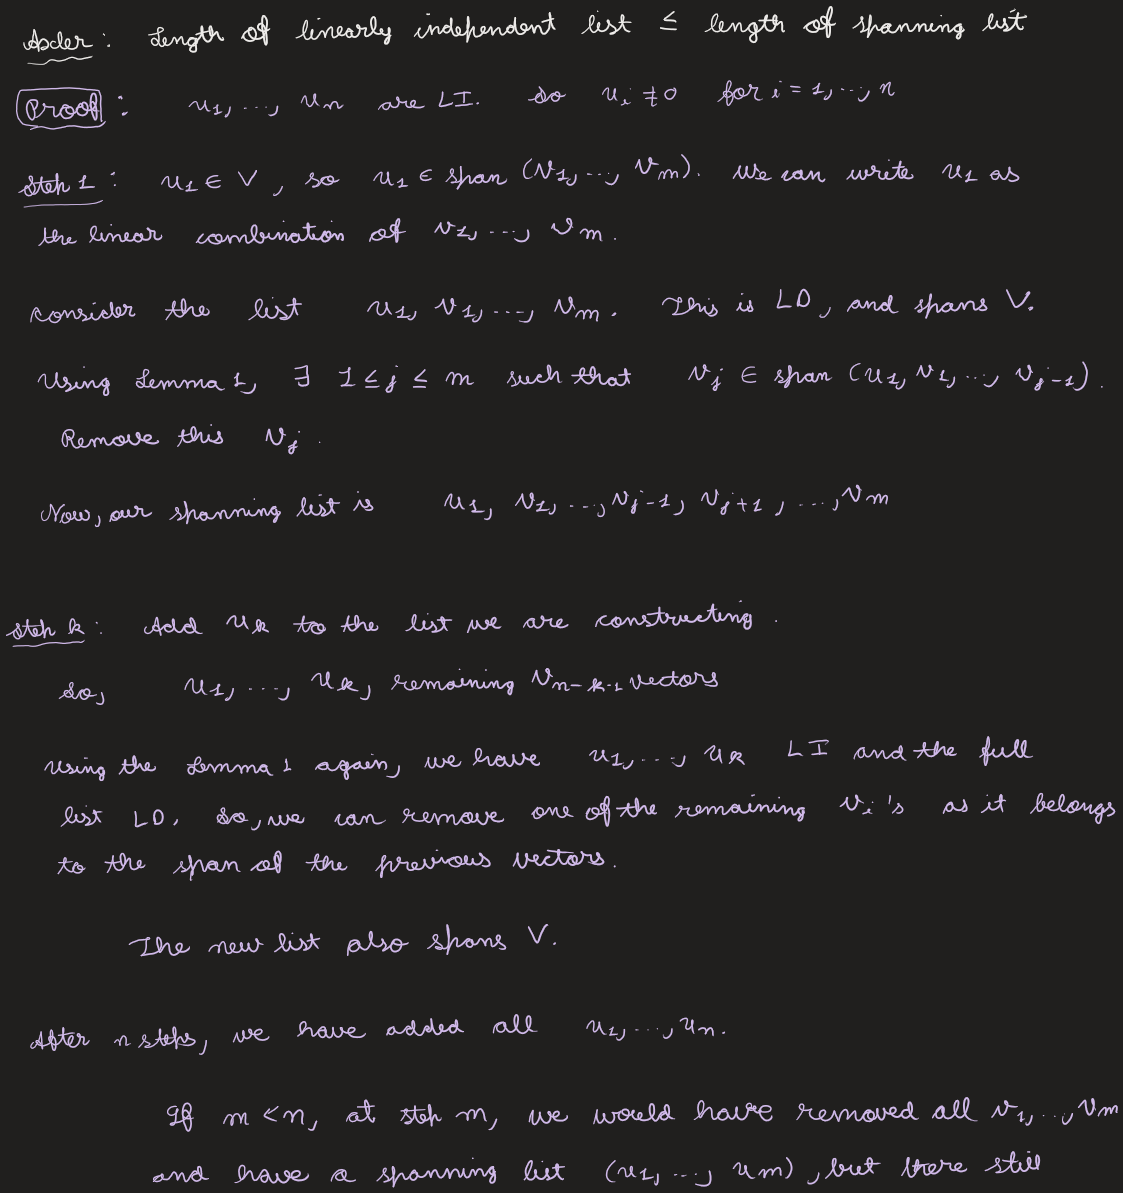 Axler: Length of linearly independent list ≤ length of spanning list
Proof: u₁, ..., uₙ are LI. So uᵢ ≠ 0 for i = 1, ..., n
Step 1: u₁ ∈ V, so u₁ ∈ span (v₁, ..., vₘ). We can write u₁ as
the linear combination of v₁, ..., vₘ.
Consider the list u₁, v₁, ..., vₘ. This is LD, and spans V.
Using Lemma 1, ∃ 1 ≤ j ≤ m such that vⱼ ∈ span (u₁, v₁, ..., vⱼ₋₁).
Remove this vⱼ.
Now, our spanning list is u₁, v₁, ..., vⱼ₋₁, vⱼ₊₁, ..., vₘ
Step k: Add uₖ to the list we are constructing.
So, u₁, ..., uₖ, remaining vₙ₋ₖ₋₁ vectors
Using the Lemma 1 again, we have u₁, ..., uₖ LI and the full
list LD. So, we can remove one of the remaining vᵢ's as it belongs
to the span of the previous vectors.
The new list also spans V.
After n steps, we have added all u₁, ..., uₙ.
If m < n, at step m, we would have removed all v₁, ..., vₘ
and have a spanning list (u₁, ..., uₘ), but there still